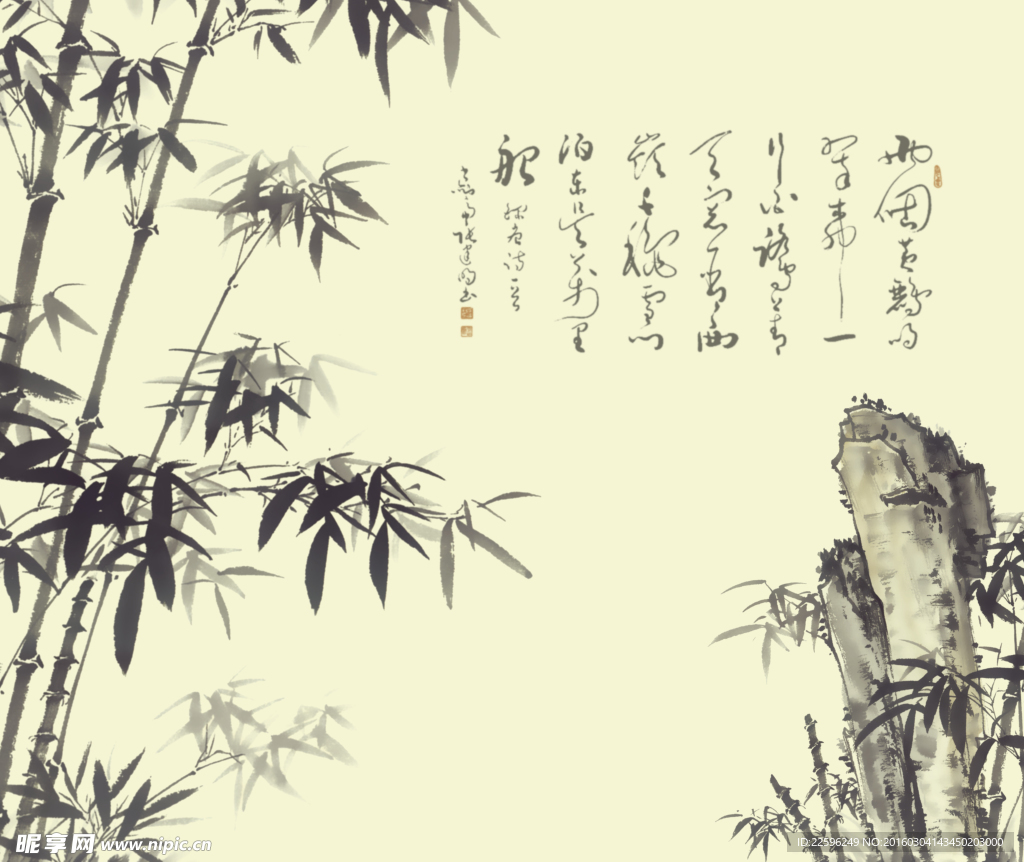 两個黄鸝鸣
翠柳一
行白鷺上青
天窗含西
嶺千秋雪门
泊东吴万里
船
诗一首
昵享网 www.nipic.cn
ID:22596249 NO:20160304143450203000